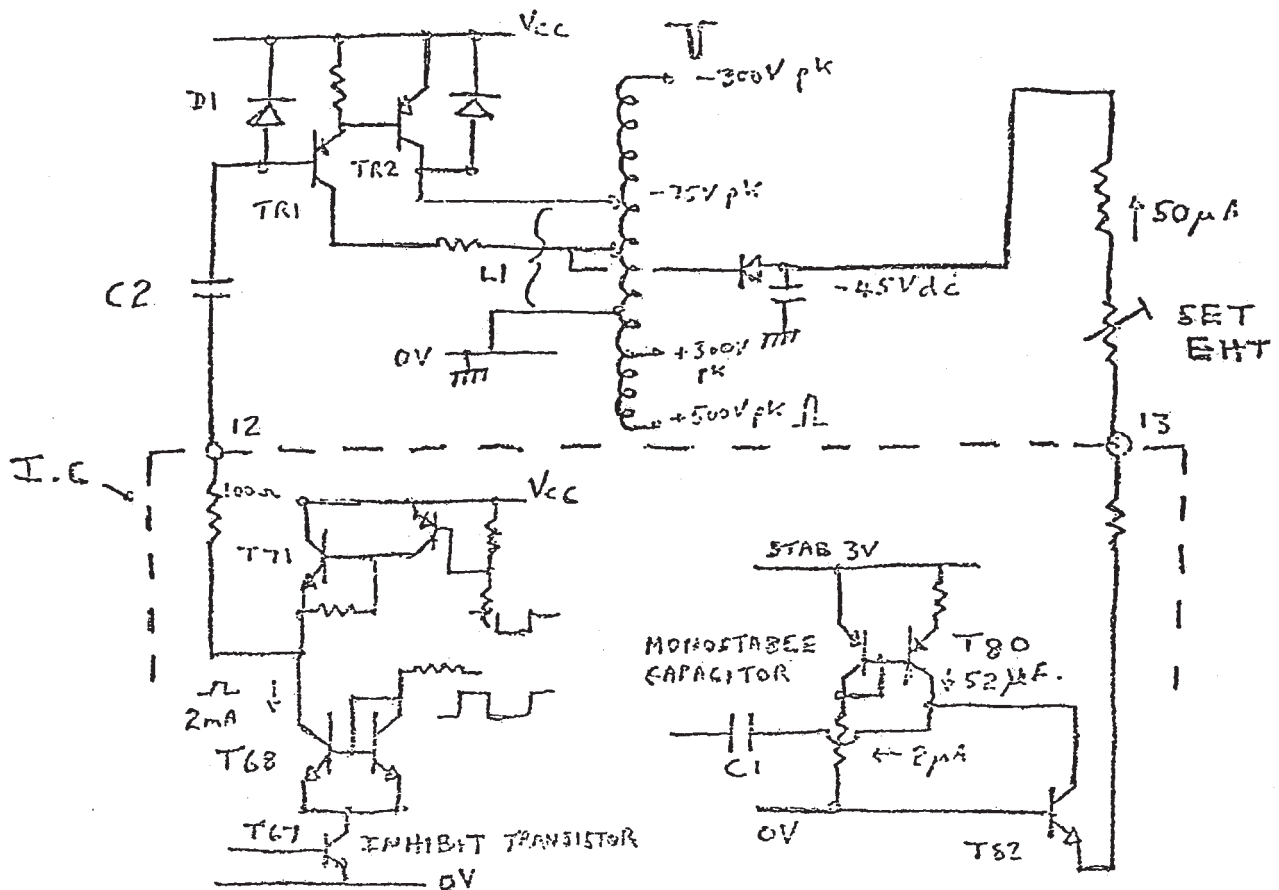 Vcc
-300V pk
D1
TR2
TR1
-75V pk
50µA
C2
L1
-45Vdc
SET
EHT
0V
+300V
pk
+500V pk
12
13
I.C
100Ω
Vcc
T71
STAB 3V
MONOSTABLE
CAPACITOR
T80
52µA.
2mA
T68
C1
2µA
T67
INHIBIT TRANSISTOR
0V
T82
0V